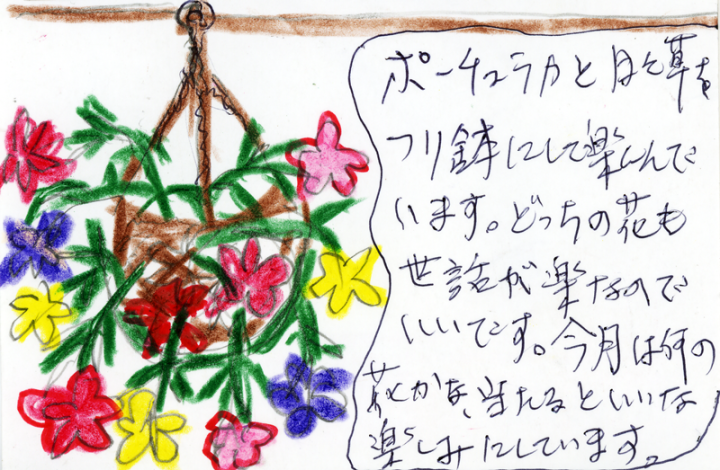 ポーチュラカと日々草を
つり鉢にして楽しんで
います。どっちの花も
世話が楽なので
いいです。今月は何の
花かな、当たるといいな
楽しみにしています。